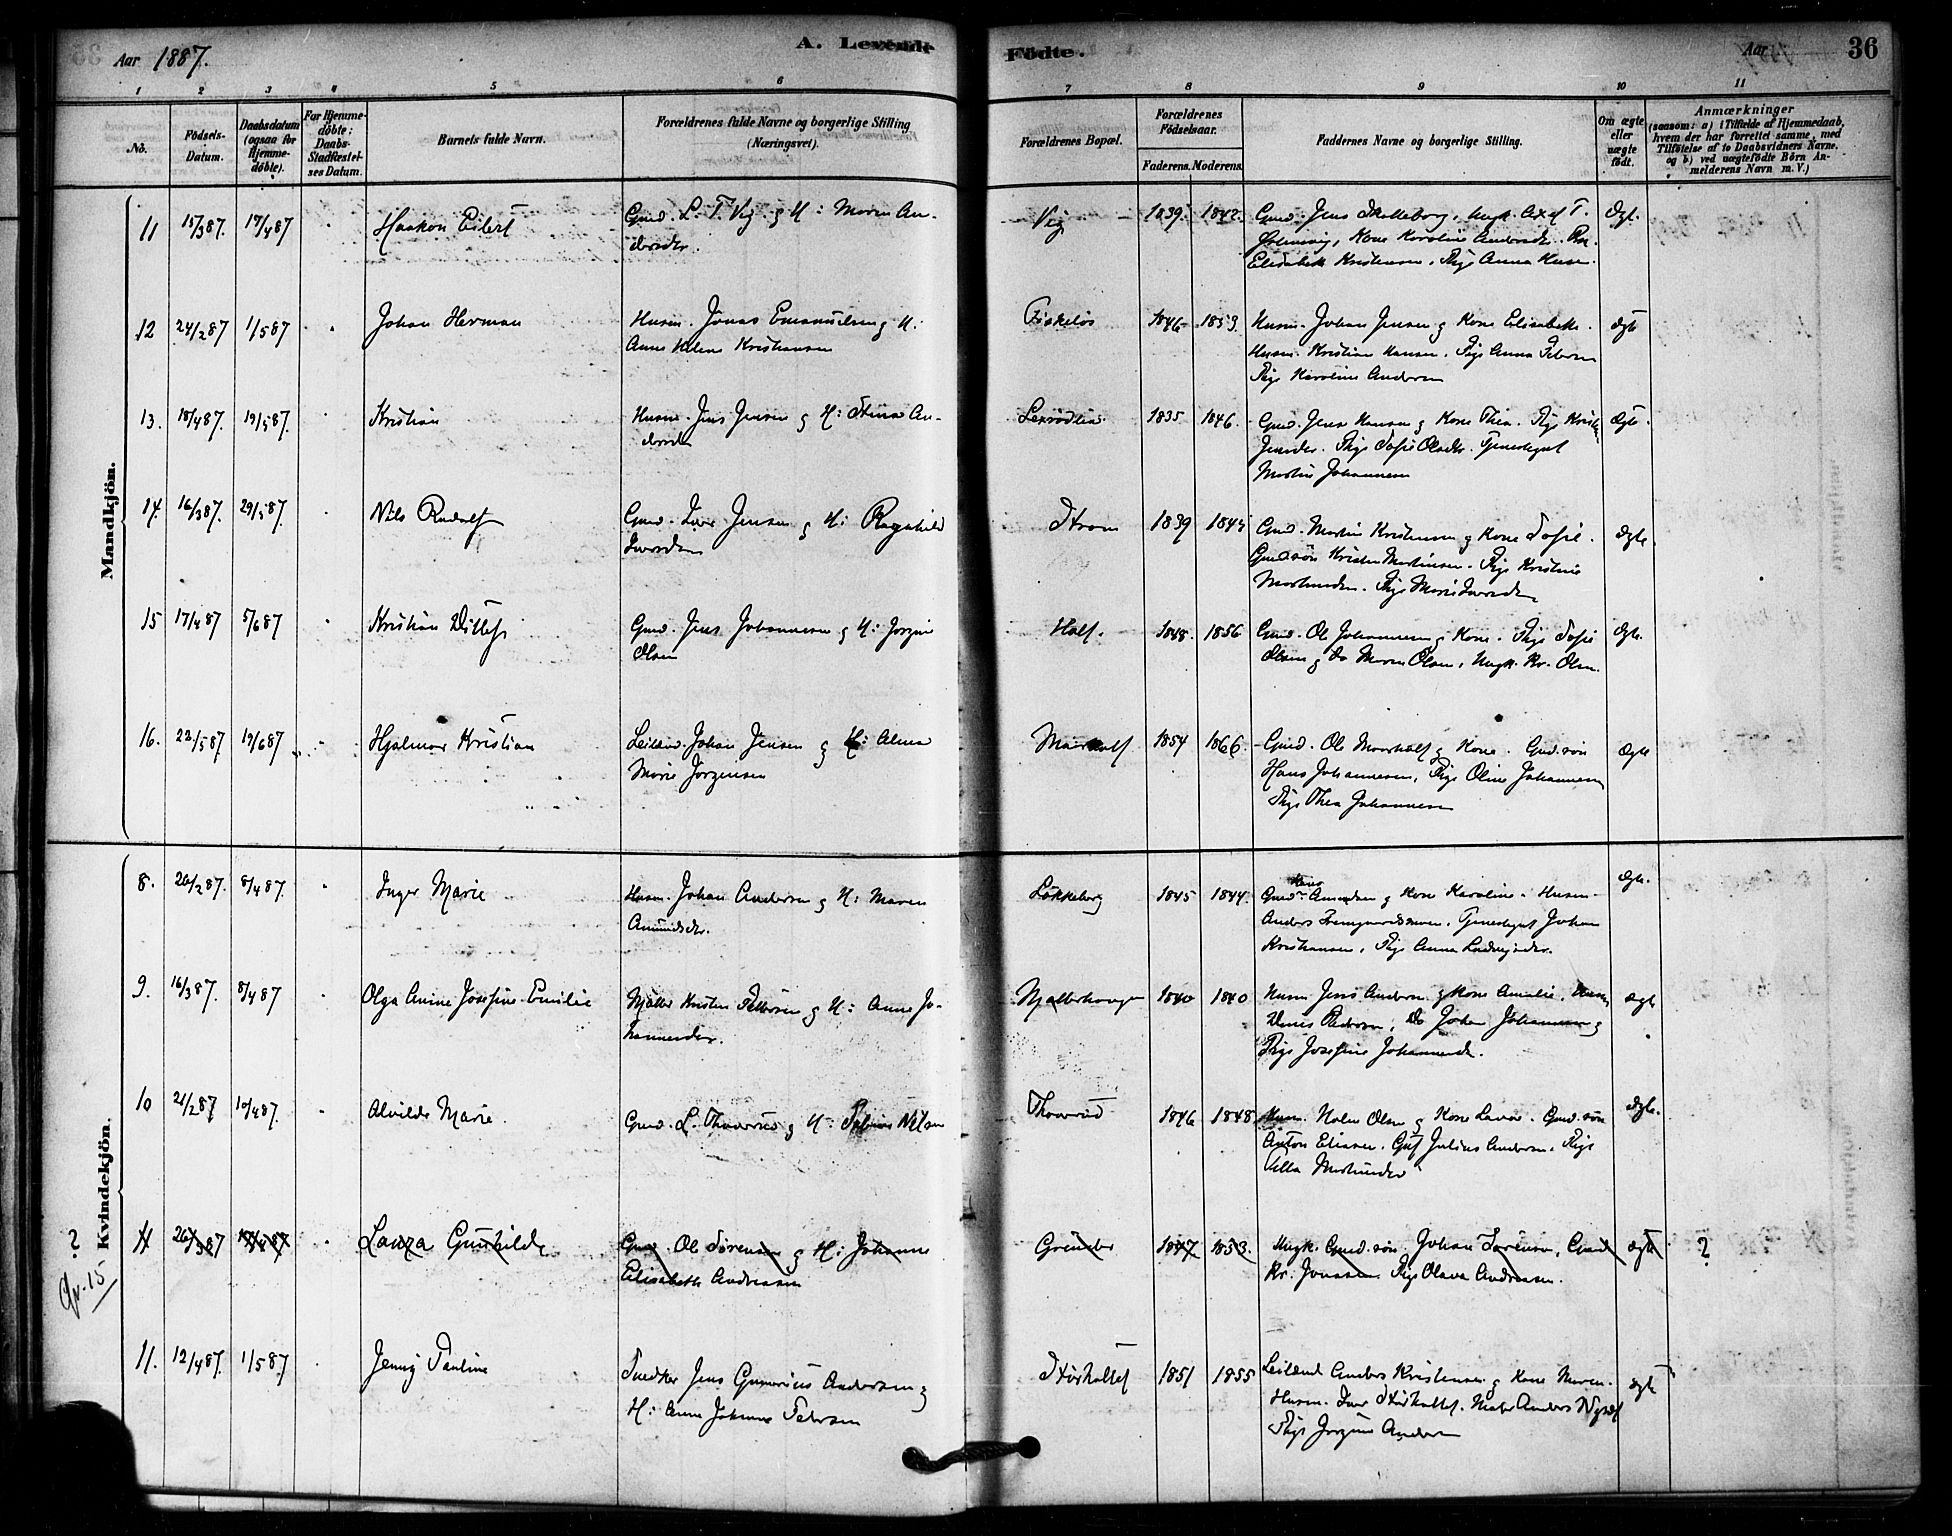 Aar 1887.
A. Levende
Födte.
Aar
36
1 2 3 4 5 6 7 8 9 10 11
No.
Födsels-
Datum.
Daabsdatum
(ogsaa for
Hjemme-
döbte).
For Hjemme-
döbte:
Daabs-
Stadfæstel-
ses Datum.
Barnets fulde Navn.
Forældrenes fulde Navne og borgerlige Stilling
(Næringsvei).
Forældrenes Bopæl.
Forældrenes
Födselsaar.
Faderens. Moderens.
Faddernes Navne og borgerlige Stilling.
Om ægte
eller
uægte
födt.
Anmærkninger
(saasom: a) i Tilfælde af Hjemmedaab,
hvem der har forrettet samme, med
Tilföielse af to Daabsvidners Navne,
og b) ved uægtefödte Börn An-
melderens Navn m. V.)
Mandkjön.
11 15/3 87. 17/4 87 Haakon Eilert
Gmd. L. T. Vig. og H: Maren An-
dersdr.
Vig 1839. 1842.
Gmd. Jens Skolleborg, Ungk. Axel T.
Kone Karoline Andersdr.
Elisabeth Kristensen, Pige Anna
Ægt.
12 24/2 87 1/5 87 Johan Herman
Husm. Jonas Emanuelsen og H:
Anne Helene Kristiansen
Fiskelös 1846 1853.
Husm. Johan Jensen og Kone Elisabeth.
Husm. Kristian Hansen. Pige Anna Petersen
Pige Karoline Andersen
Ægte
13. 18/4 87. 19/5 87. Kristian
Husm. Jens Jensen og H: Stina An-
dersdr
1835 1846.
Gmd. Jens Hansen og Kone Thea. Pige
Jensdr. Pige Sofie Olsdr. Tjenestegut
Martin Johannesen
Ægte.
14. 16/3 87. 29/5 87. Nils Rudolf
Gmd. Iver Jensen og H: Ragnhild
Iversdr
Strøm 1839 1845
Gmd. Martin Kristensen og Kone Sofie.
Gmdsön Kristen Martinsen. Pige Kristine
Martinsdr. Pige Marie Iversdr.
Ægte.
15 17/4 87 5/6 87 Kristian Ditlef
Gmd. Jens Johannesen og H: Jørgine
Olsen
Half. 1848. 1856
Gmd. Ole Johannesen og Kone. Pige Sofie
Olsen og do Maren Olsen, Ungk. Kr. Olsen.
Ægte.
16. 22/5 87 19/6 87 Hjalmar Kristian
Leilænd. Johan Jensen og H: Alma
Marie Jørgensen
1854 1866.
Gmd. Ole og Kone. Gmd.sön
Hans Johannesen, Pige Oline Johannesen
Pige Thea Johannesen
Ægte
Kvindekjön.
8. 26/2 87. 8/4 87. Inger Marie
Husm. Johan Andersen og H: Maren
Amundsdr.
Løkkeberg 1845 1844.
Hans
Gmd. Amundsen og Kone Karoline. Husm.
Anders Tjenestegut Johan
Kristiansen, Pige Anna Ludvigsdr.
Ægte.
9. 16/3 87. 8/4 87 Olga Anine Josefine Emilie
Møller Kristen Pettersen og H: Anne Jo-
hannesdr.
1840 1840
Husm. Jens Andersen og Kone Amalie.
Pedersen, Do Johan Johannesen og
Pige Josefine Johannesdr.
Ægte
10 21/2 87 10/4 87. Alvilde Marie
Gmd. L. Thorerud og H: Nilsen
Thorerud 1846 1848
Husm. Olsen og Kone Lava. Gmd.sön
Anton Eliasen. Julius Andersen, Pige
Martinsdr
Ægte.
? 11 26/3 87 Laura Gunhilde
Gmd. Ole Sørensen og H: Johanne
Elisabeth Andreasen
1847 1853.
Ungk. Gmd.sön Johan Sørensen, Gmd
Kr. Jonassen Pige Olava Andreasen.
Ægte ?
Gv. 15
11. 12/4 87. 1/5 87 Jenny Pauline
Snedker Jens Gunerius Andersen og
H: Anne Johanne Petersen
Störholtet 1851 1855
Leilænd Anders Kristensen og Kone Maren.
Husm. Iver Störholtet. Anders
Pige Jørgine Andersen
Ægte